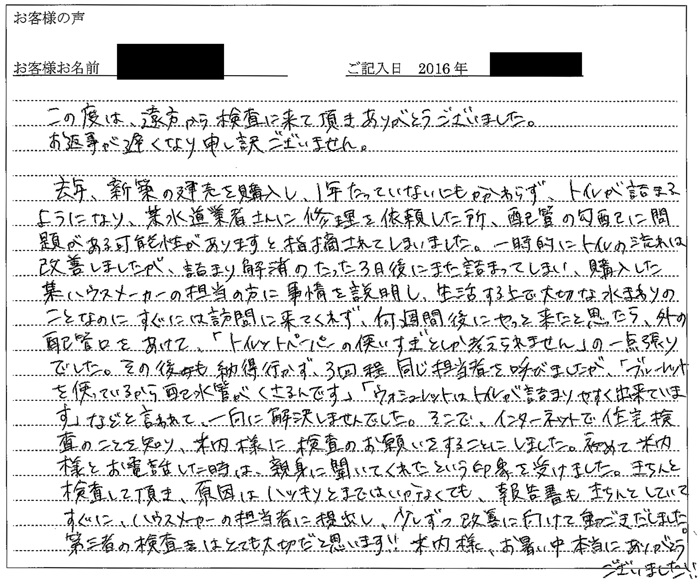 お客様の声
お客様お名前
ご記入日 2016年
この度は、遠方から検査に来て頂きありがとうございました。
お返事が遅くなり申し訳ございません。
去年、新築の建売を購入し、1年たっていないにもかかわらず、トイレが詰まる
ようになり、某水道業者さんに修理を依頼した所、配管の勾配に問
題がある可能性がありますと指摘されてしまいました。一時的にトイレの流れは
改善しましたが、詰まり解消のたった3日後にまた詰まってしまい、購入した
某ハウスメーカーの担当の方に事情を説明し、生活する上で大切な水まわりの
ことなのにすぐには訪問に来てくれず、何週間後にやっと来たと思たら、外の
配管口をあけて、「トイレットペーパーの使いすぎとしか考えられません」の一点張り
でした。その後も納得行かず、3回程同じ担当者を呼びましたが、「ブルーレット
を使っているから配水管がくさるんです」「ウォシュレットはトイレが詰まりやすく出来ていま
す」などと言われて、一向に解決しませんでした。そこで、インターネットで住宅検
査のことを知り、米内様に検査のお願いをすることにしました。初めて米内
様とお電話した時は、親身に聞いてくれたという印象を受けました。きちんと
検査して頂き、原因はハッキリとまではいかなくても、報告書もきちんとしていて
すぐに、ハウスメーカーの担当者に提出し、少しずつ改善に向けて動きだしました。
第三者の検査はとても大切だと思います!! 米内様、お暑い中本当にありがとう
ございました!!